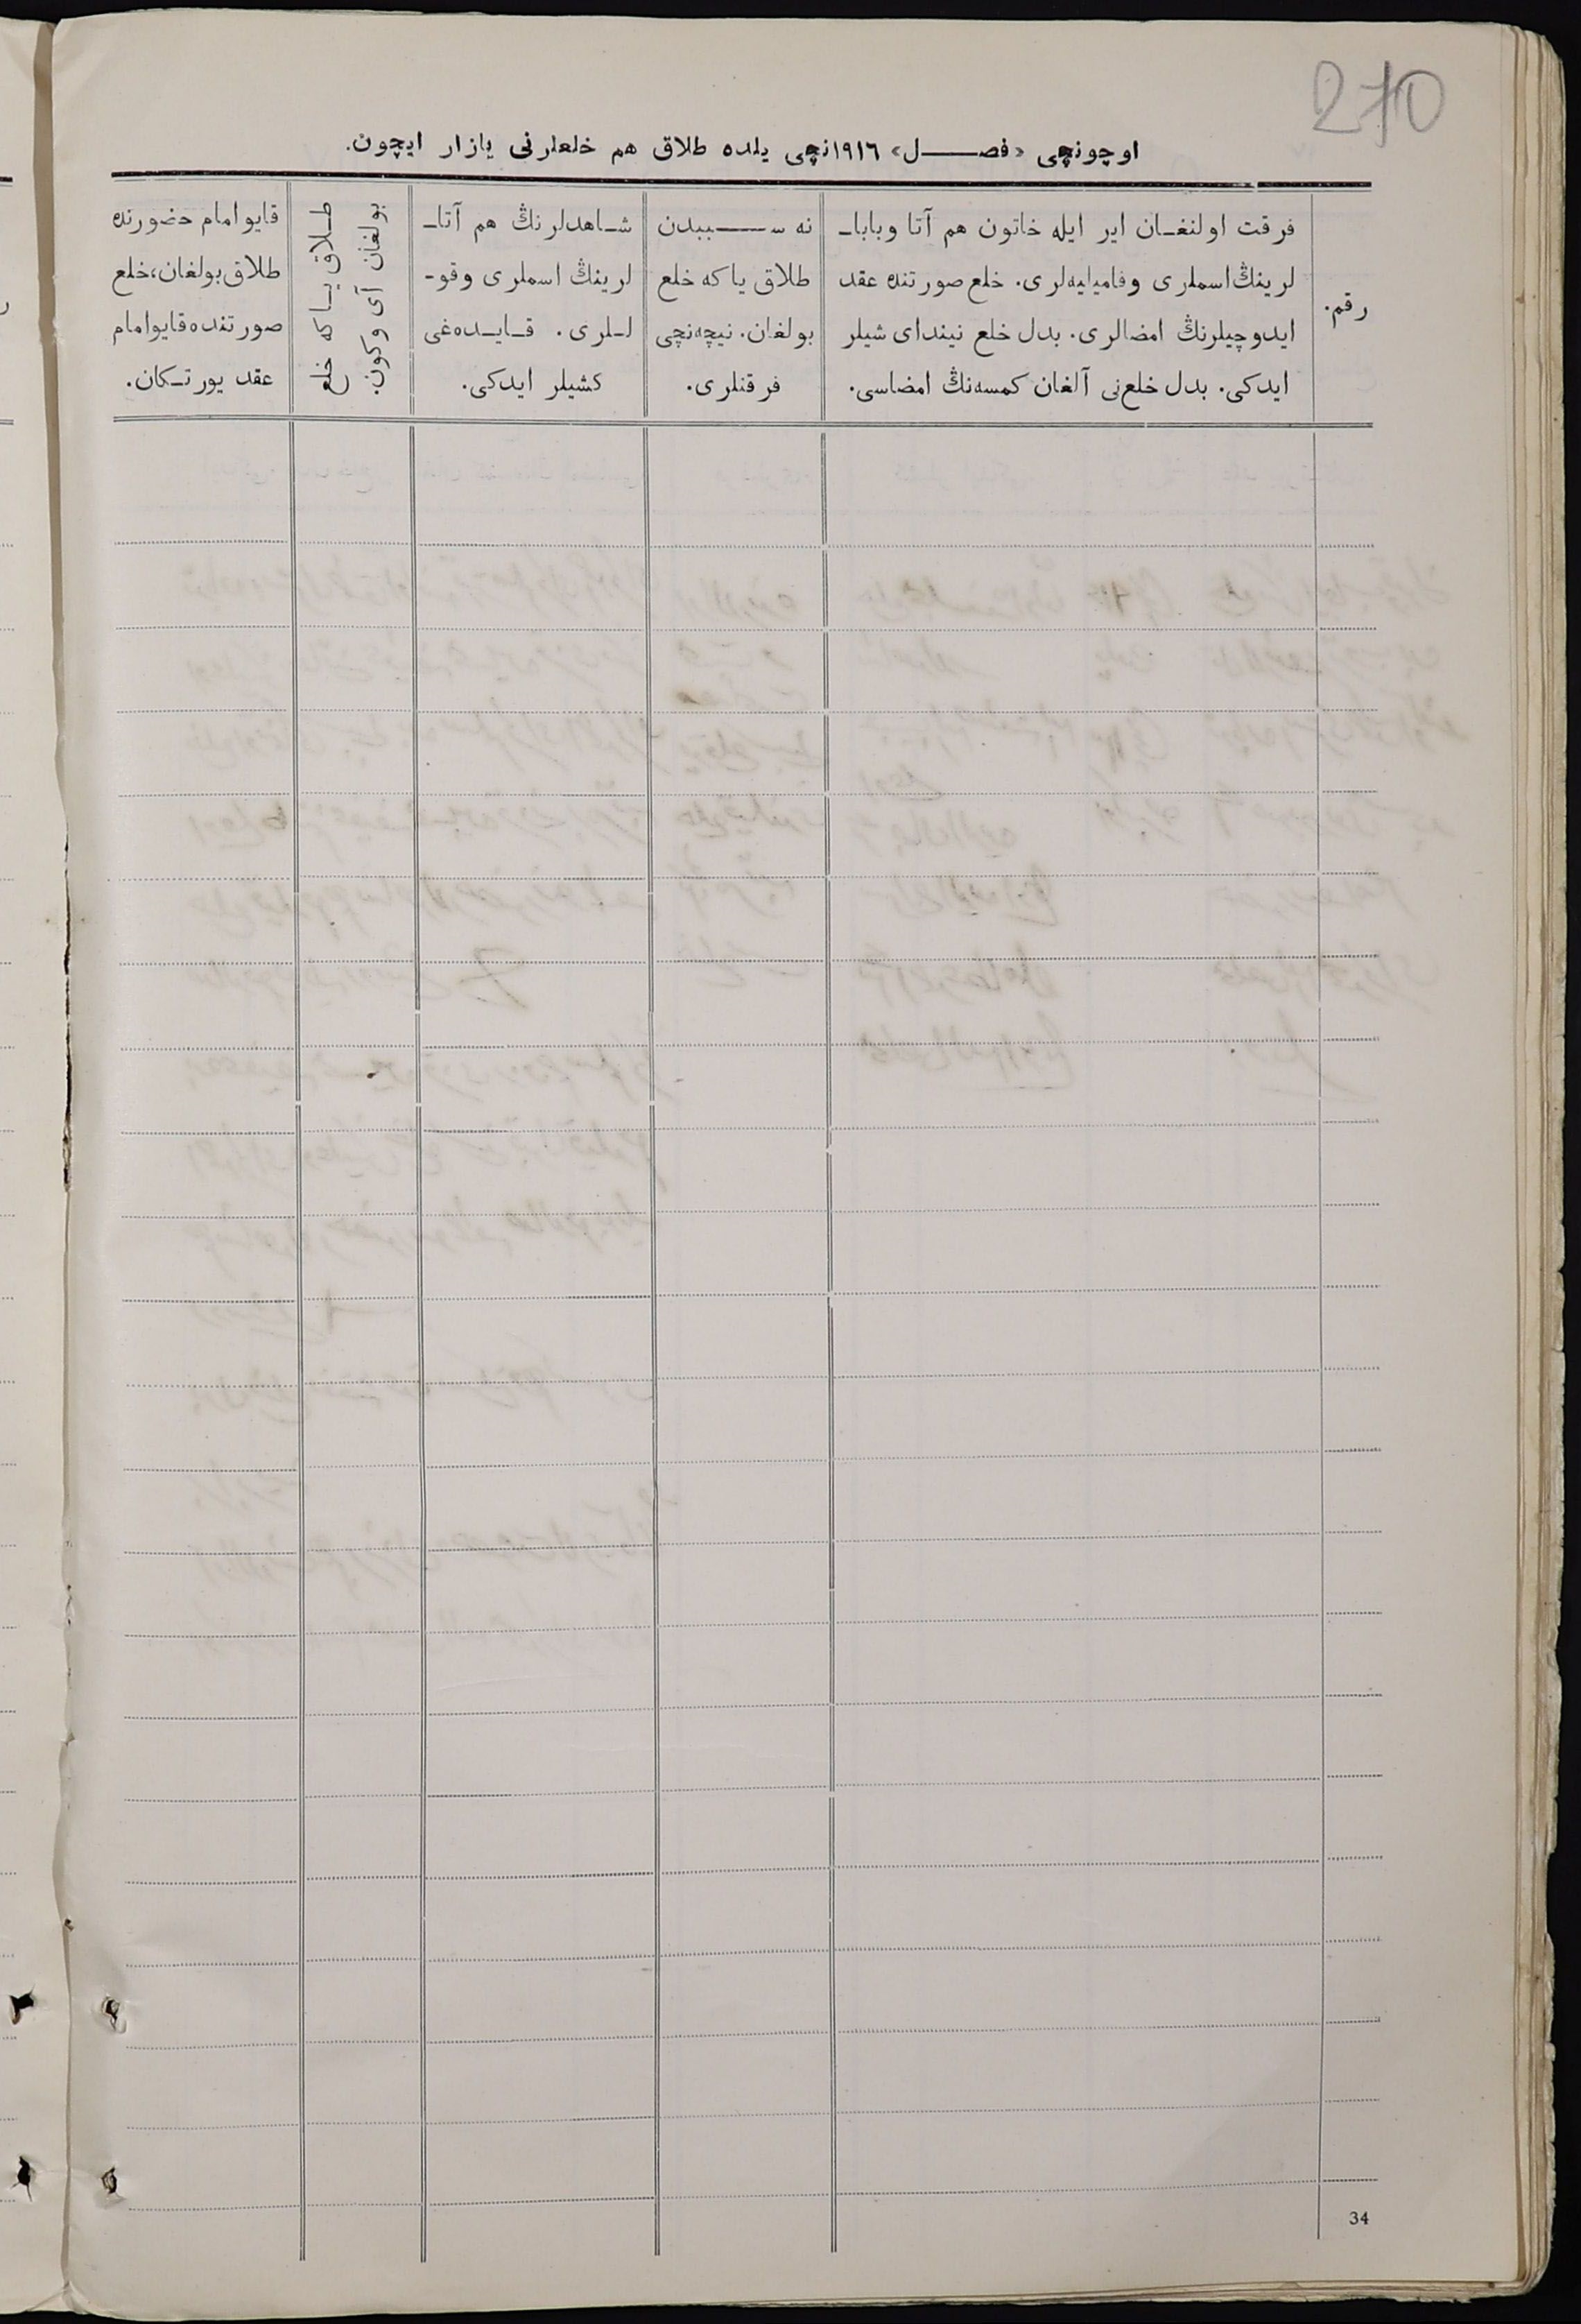 270
اوچونچی «فصل» ١٩١٦نچی یلده طلاق هم خلعلرنی یازار ایچون.
رقم.
فرقت اولنغان ایر ایله خاتون هم آتا وبابا-
لرینڭ اسملری وفامیلیه‌لری. خلع صورتنده عقد
ایدوچیلرنڭ امضالری. بدل خلع نیندای شیلر
ایدکی. بدل خلع‌نی آلغان کمسه‌نڭ امضاسی.
نه سببدن
طلاق یا که خلع
بولغان. نیچه‌نچی
فرقتلری.
شاهدلرنڭ هم آتا-
لرینڭ اسملری وقو-
للری. قایده‌غی
کشیلر ایدکی.
طلاق یا که خلع
بولغان آی وکون.
قایو امام حضورنده
طلاق بولغان، خلع
صورتنده قایو امام
عقد یورتکان.
34